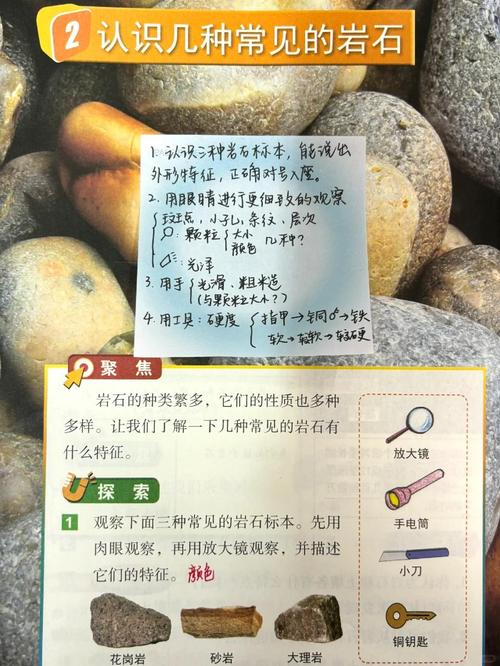 2 认识几种常见的岩石
1. 认识三种岩石标本，能说出
外形特征，正确对号入座。
2. 用眼睛进行更细致的观察
斑点，小孔，条纹，层次
颗粒 大小 颜色 几种？
光泽
3. 用手 光滑、粗糙
(与颗粒大小？)
4. 用工具：硬度 指甲→铜→铁
软→较软→较硬
聚焦
岩石的种类繁多，它们的性质也多种
多样。让我们了解一下几种常见的岩石有
什么特征。
探索
1 观察下面三种常见的岩石标本。先用
肉眼观察，再用放大镜观察，并描述
它们的特征。颜色
花岗岩 砂岩 大理岩
放大镜
手电筒
小刀
铜钥匙